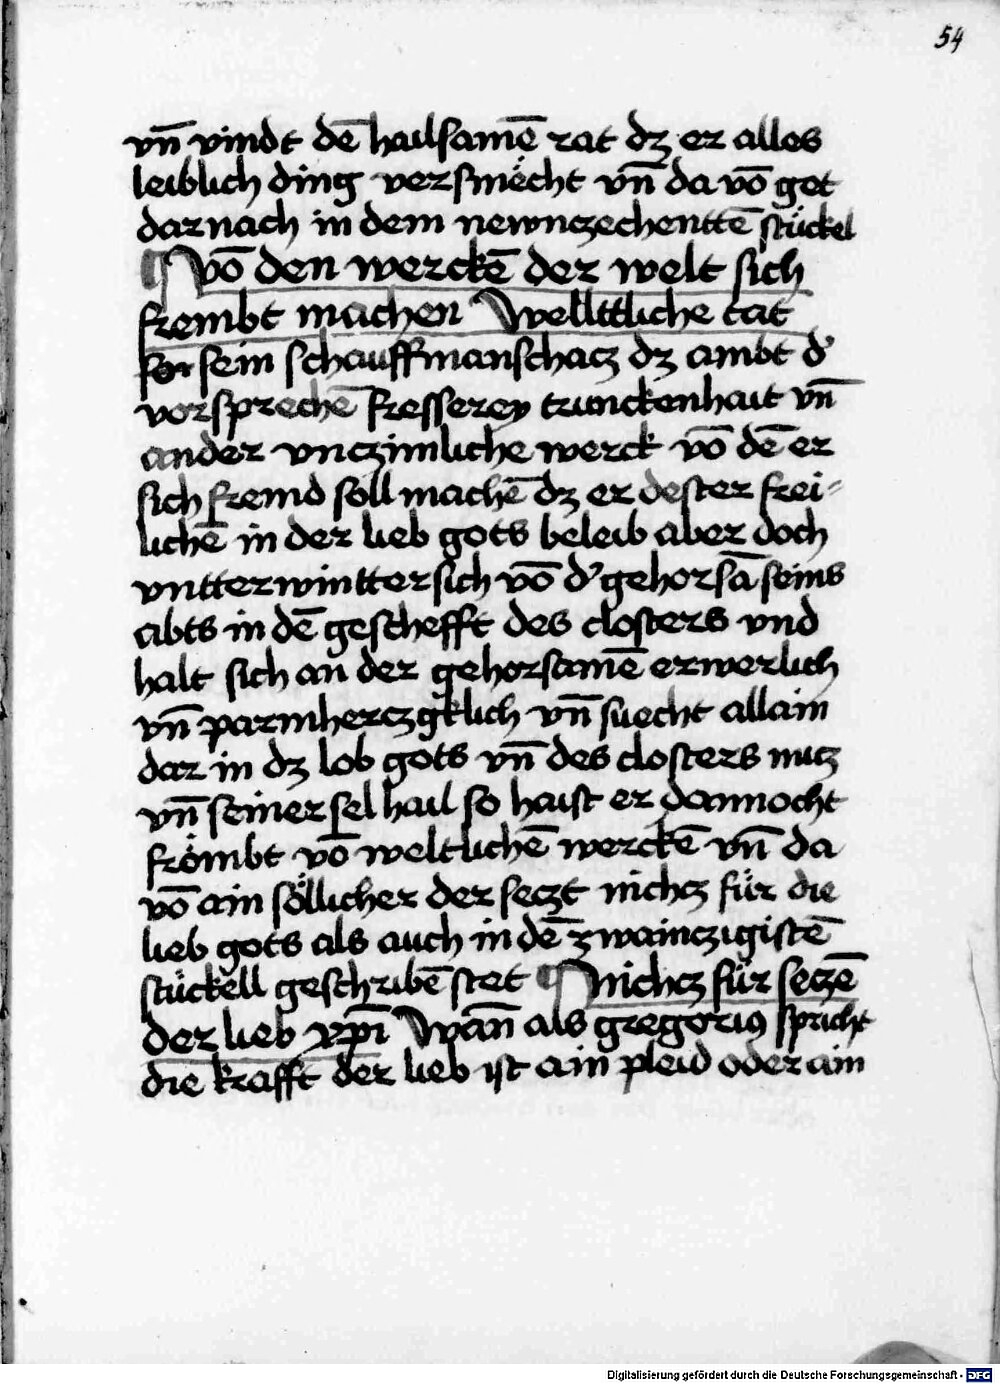 54
vn̄ vindt dē hailsamē rat dʒ er alles
leiblich ding versmëcht vn̄ da vō get
darnach in dem newnczechenttē stückel
¶ vō den werckē der welt sich
frembt machen Wellttliche tat
sein schauffmanschacz dʒ ambt d'
vorsprechē fresserey trunckenhait vn̄
ander vnczimliche werck vō dē er
sich fremd soll machē dʒ er dester frei-
lichē in der lieb gots beleib aber doch
vntterwintter sich vō d' gehorsā seins
abts in dē geschefft des closters vnd
halt sich an der gehorsamē erwerlich
vn̄ parmherczgklich vn̄ suecht allain
dar in dʒ lob gots vn̄ des closters nucz
vn̄ seiner sel hail so haist er dannocht
frömbt vō weltlichē werckē vn̄ da
vō ain söllicher der seczt nichcz für die
lieb gots als auch in dē zwainczigistē
stückell geschribē stet ¶ Nichcz für seczē
der lieb xp̄i Wān als gregorius spricht
die krafft der lieb ist ain pleid oder ain
Digitalisierung gefördert durch die Deutsche Forschungsgemeinschaft - DFG